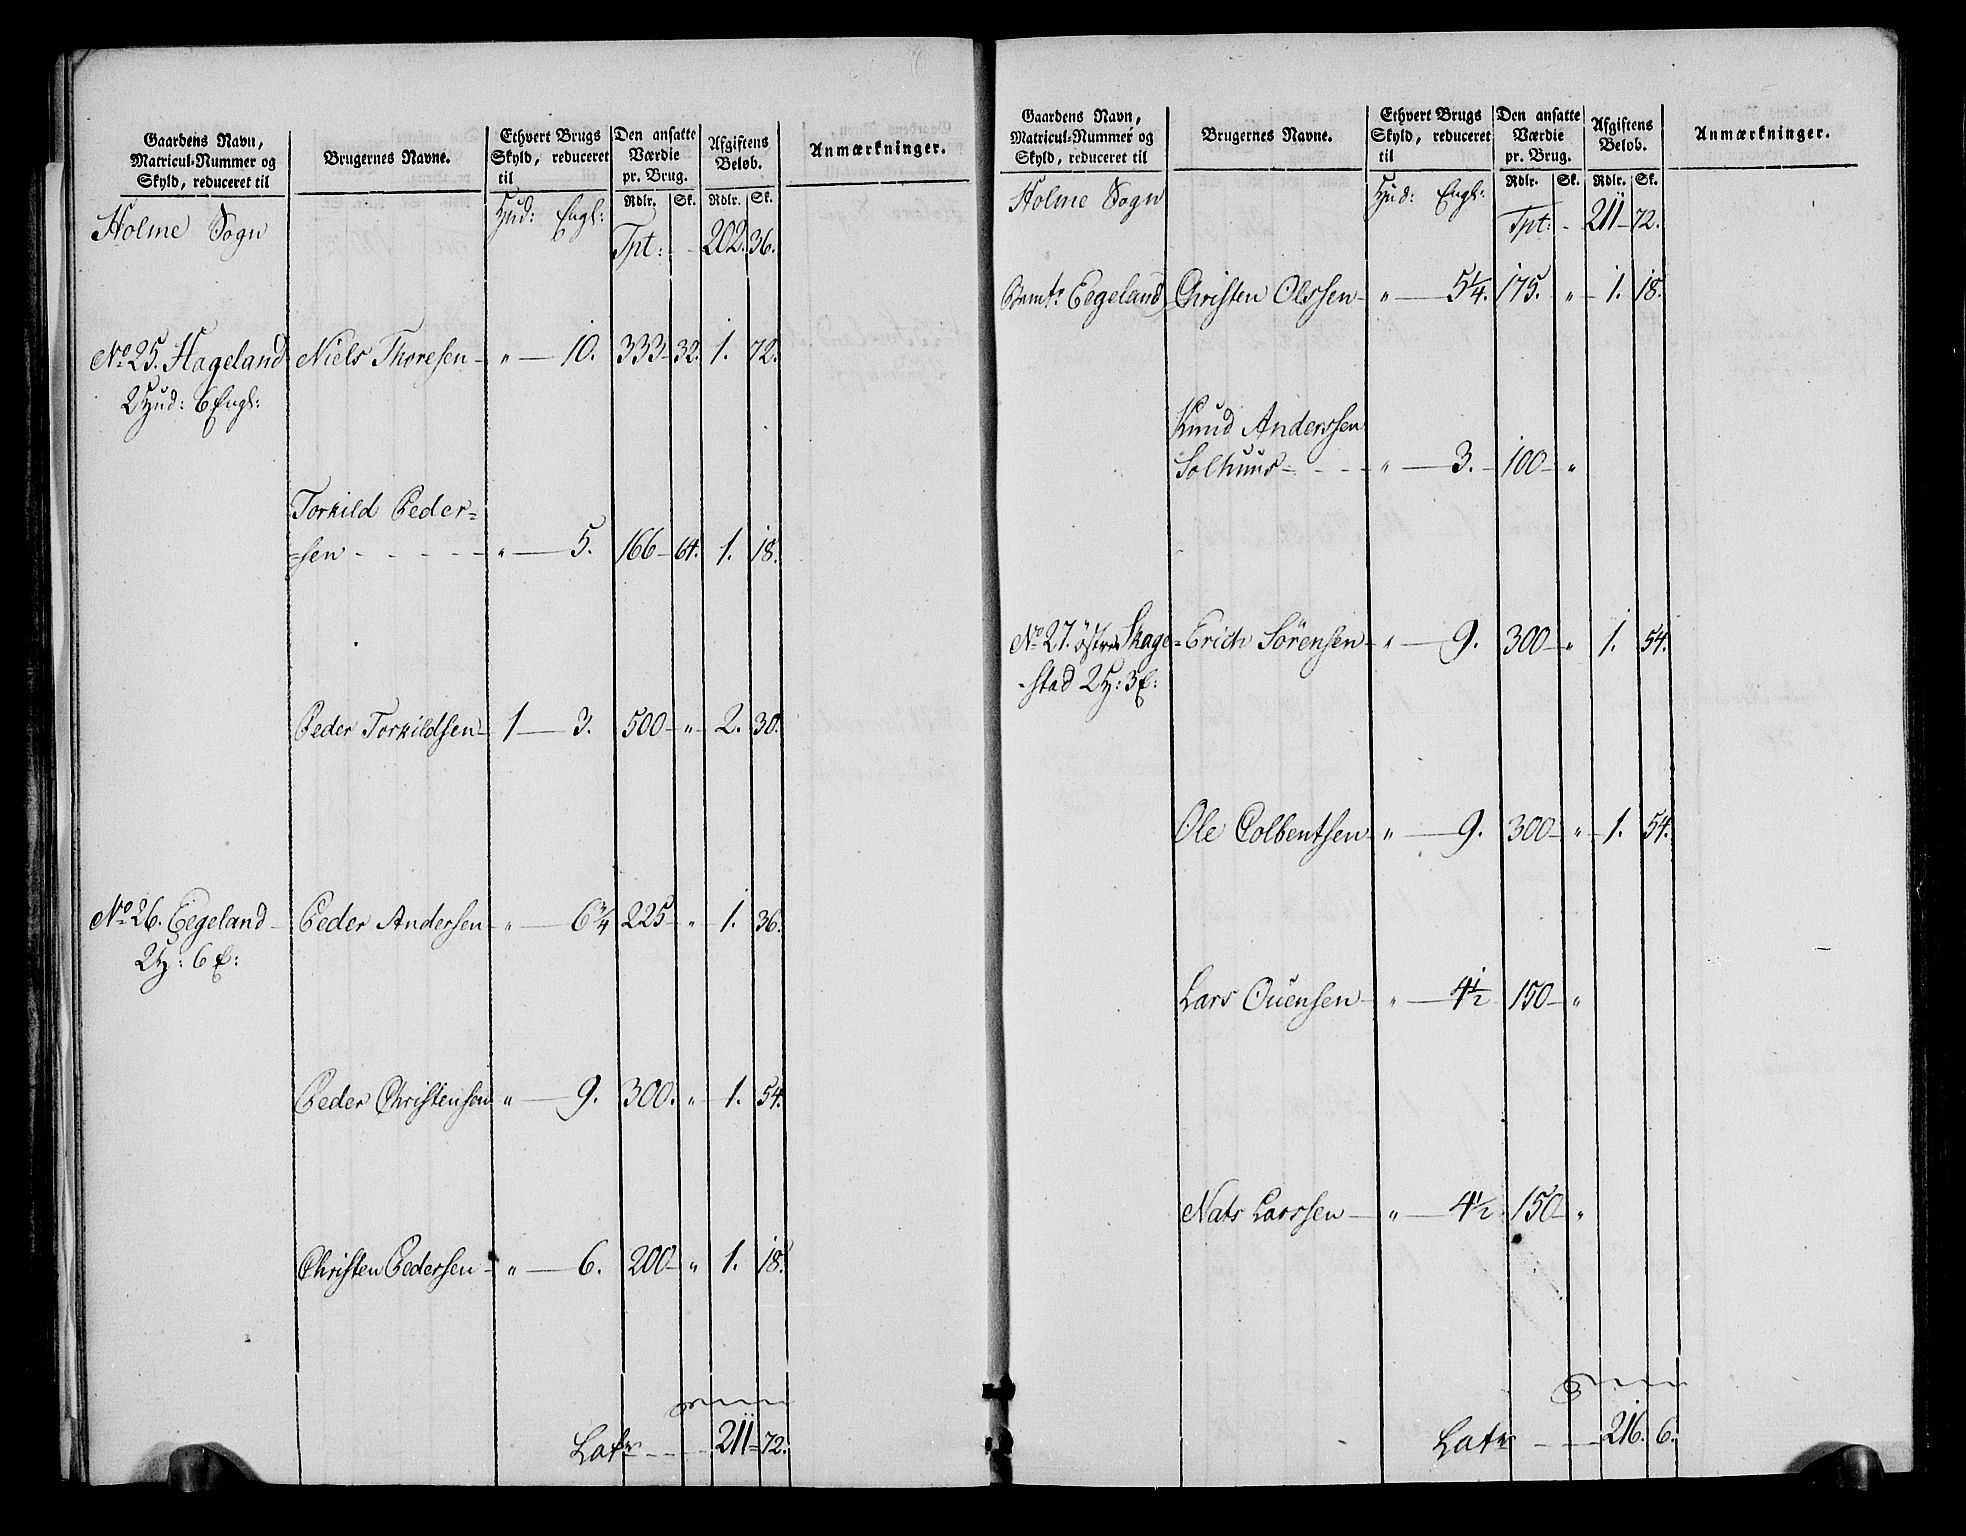 Gaardens Navn, Matricul-Nummer og Skyld, reduceret til | Brugernes Navne. | Ethvert Brugs Skyld, reduceret til | Den ansatte Værdie pr. Brug. | Afgiftens Beløb. | Anmærkninger.
Rdlr. Sk. Rdlr. Sk.
Holme Sogn Hud: Engl: Tpt: - 202. 36.
No 25. Hageland Niels Thoresen - " - 10. 333 - 32. 1. 72.
2 Hud: 6 Engl:
Torkild Peder=
=sen - - - - - " - 5. 166 - 64. 1. 18.
Peder Torkildsen - 1 - 3. 500 - " - 2. 30.
No 26. Eegeland - Peder Andersen - " - 6¾ 225 - " - 1. 36.
2 H: 6 E:
Peder Christensen " - 9. 300. " - 1. 54.
Christen Pedersen - " - 6. 200 - " 1. 18.
Latr - - - 211 - 72.
Gaardens Navn, Matricul-Nummer og Skyld, reduceret til | Brugernes Navne. | Ethvert Brugs Skyld, reduceret til | Den ansatte Værdie pr. Brug. | Afgiftens Beløb. | Anmærkninger.
Rdlr. Sk. Rdlr. Sk.
Holme Sogn Hud: Engl: Tpt: - 211 - 72.
Eegeland Christen Olssen - " - 5¼. 175. " - 1. 18.
Knud Anderssen
Solhuus - - - - " - 3. - 100 - "
No 27. østre Skage= Erich Sörensen - " - 9. 300 - " 1. 54.
=stad 2 H: 3 E:
Ole Colbentsen - " - 9. 300 - " - 1. 54.
Lars Ouensen - " - 4½ 150 - "
Nats Larssen - " - 4½ 150 - "
Latr - - - 216. 6.